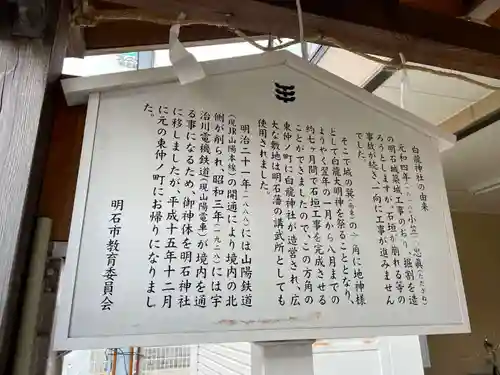 白龍神社の由来
元和四年(一六一八)小笠原忠真(ただざね)
の明石城築城工事のおり、掘割を造
ろうとしますが、石垣が崩れる等の
事故が続き、一向に工事が進みません
でした。
そこで城の巽(南東)の一角に地神様
として白龍大明神を祭ることとなり、
ようやく翌年の一月から八月までの
約七ヶ月間で石垣工事を完成させる
ことができましたので、この方角の
東仲ノ町に白龍神社が造営され、広
大な敷地は明石藩の講武所としても
使用されました。
明治二十一年(一八八八)には山陽鉄道
(現JR山陽本線)の開通により境内の北
側が削られ、昭和三年(一九二八)には宇
治川電機鉄道(現山陽電車)が境内を通
る事になるため、御神体を明石神社
に移しましたが、平成十五年十二月
に元の東仲ノ町にお帰りになりまし
た。
明石市教育委員会